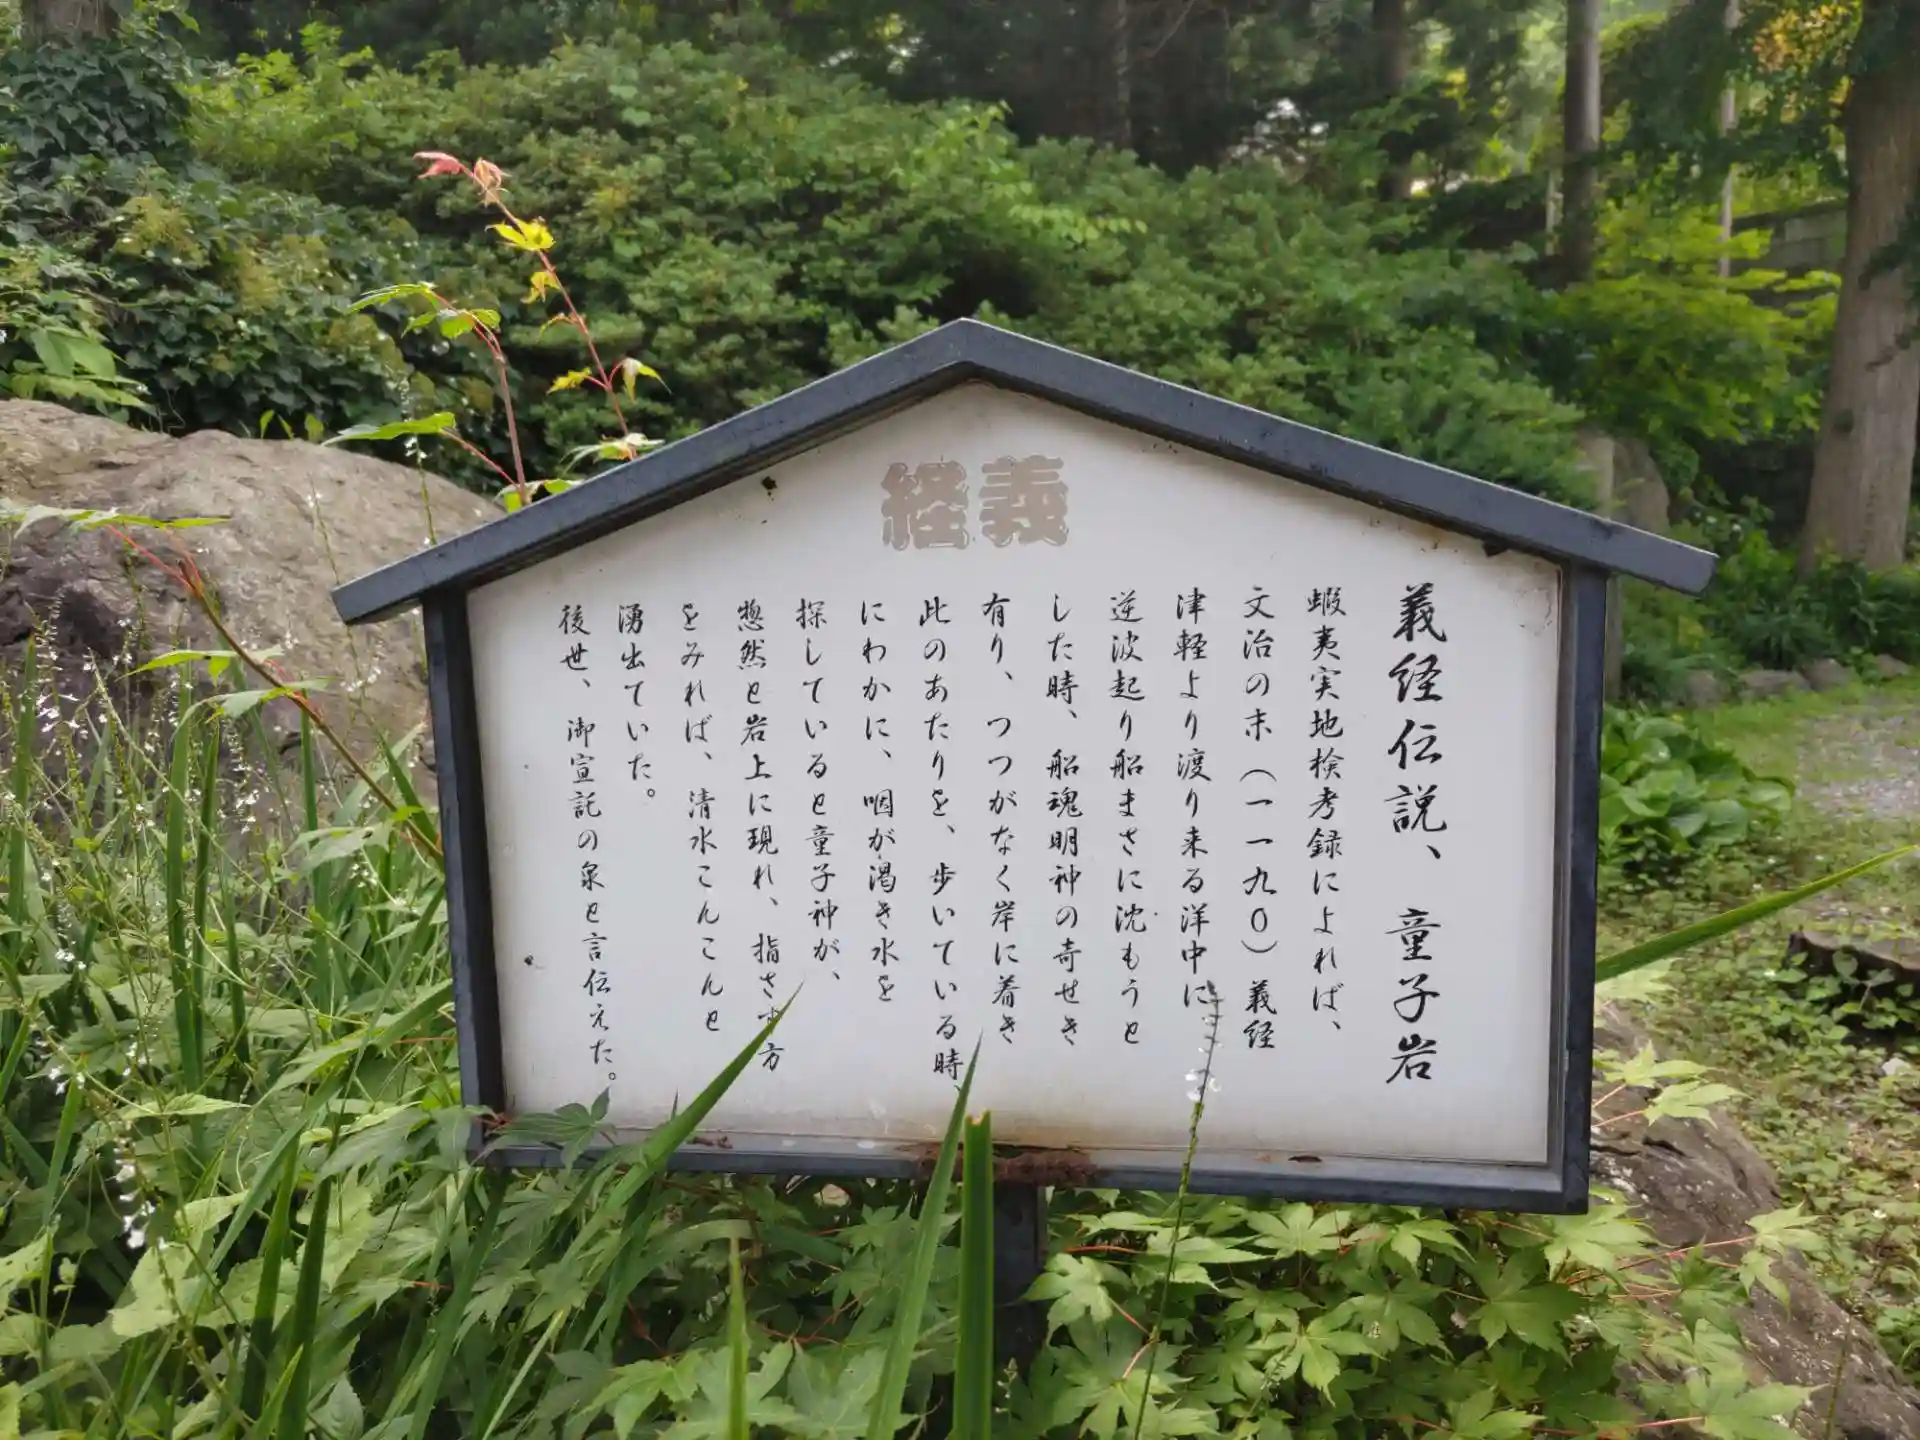 義経
義経伝説、童子岩
蝦夷実地検考録によれば、
文治の末(一一九〇)義経
津軽より渡り来る洋中に
逆波起り船まさに沈もうと
した時、船魂明神の奇せき
有り、つつがなく岸に着き
此のあたりを、歩いている時、
にわかに、咽が渇き水を
探していると童子神が、
惣然と岩上に現れ、指さす方
をみれば、清水こんこんと
湧出ていた。
後世、御宣託の泉と言伝えた。